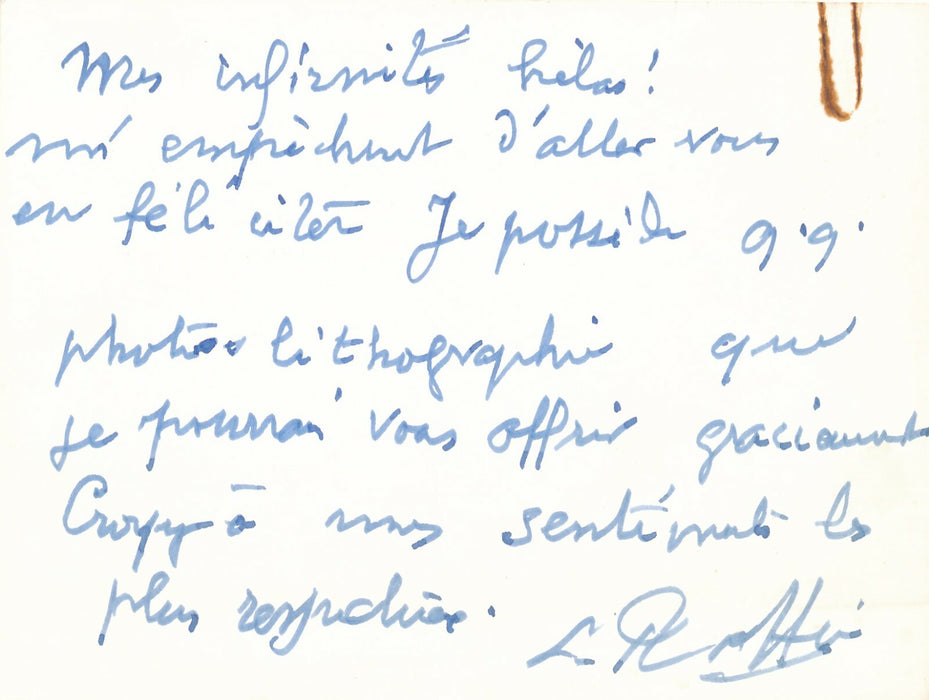 Mes infirmités hélas!
m'empêchent d'aller vous
en féliciter Je possède q.q.
photos lithographie que
je pourrai vous offrir gracieusement
Croyez à mes sentiments les
plus respectueux.